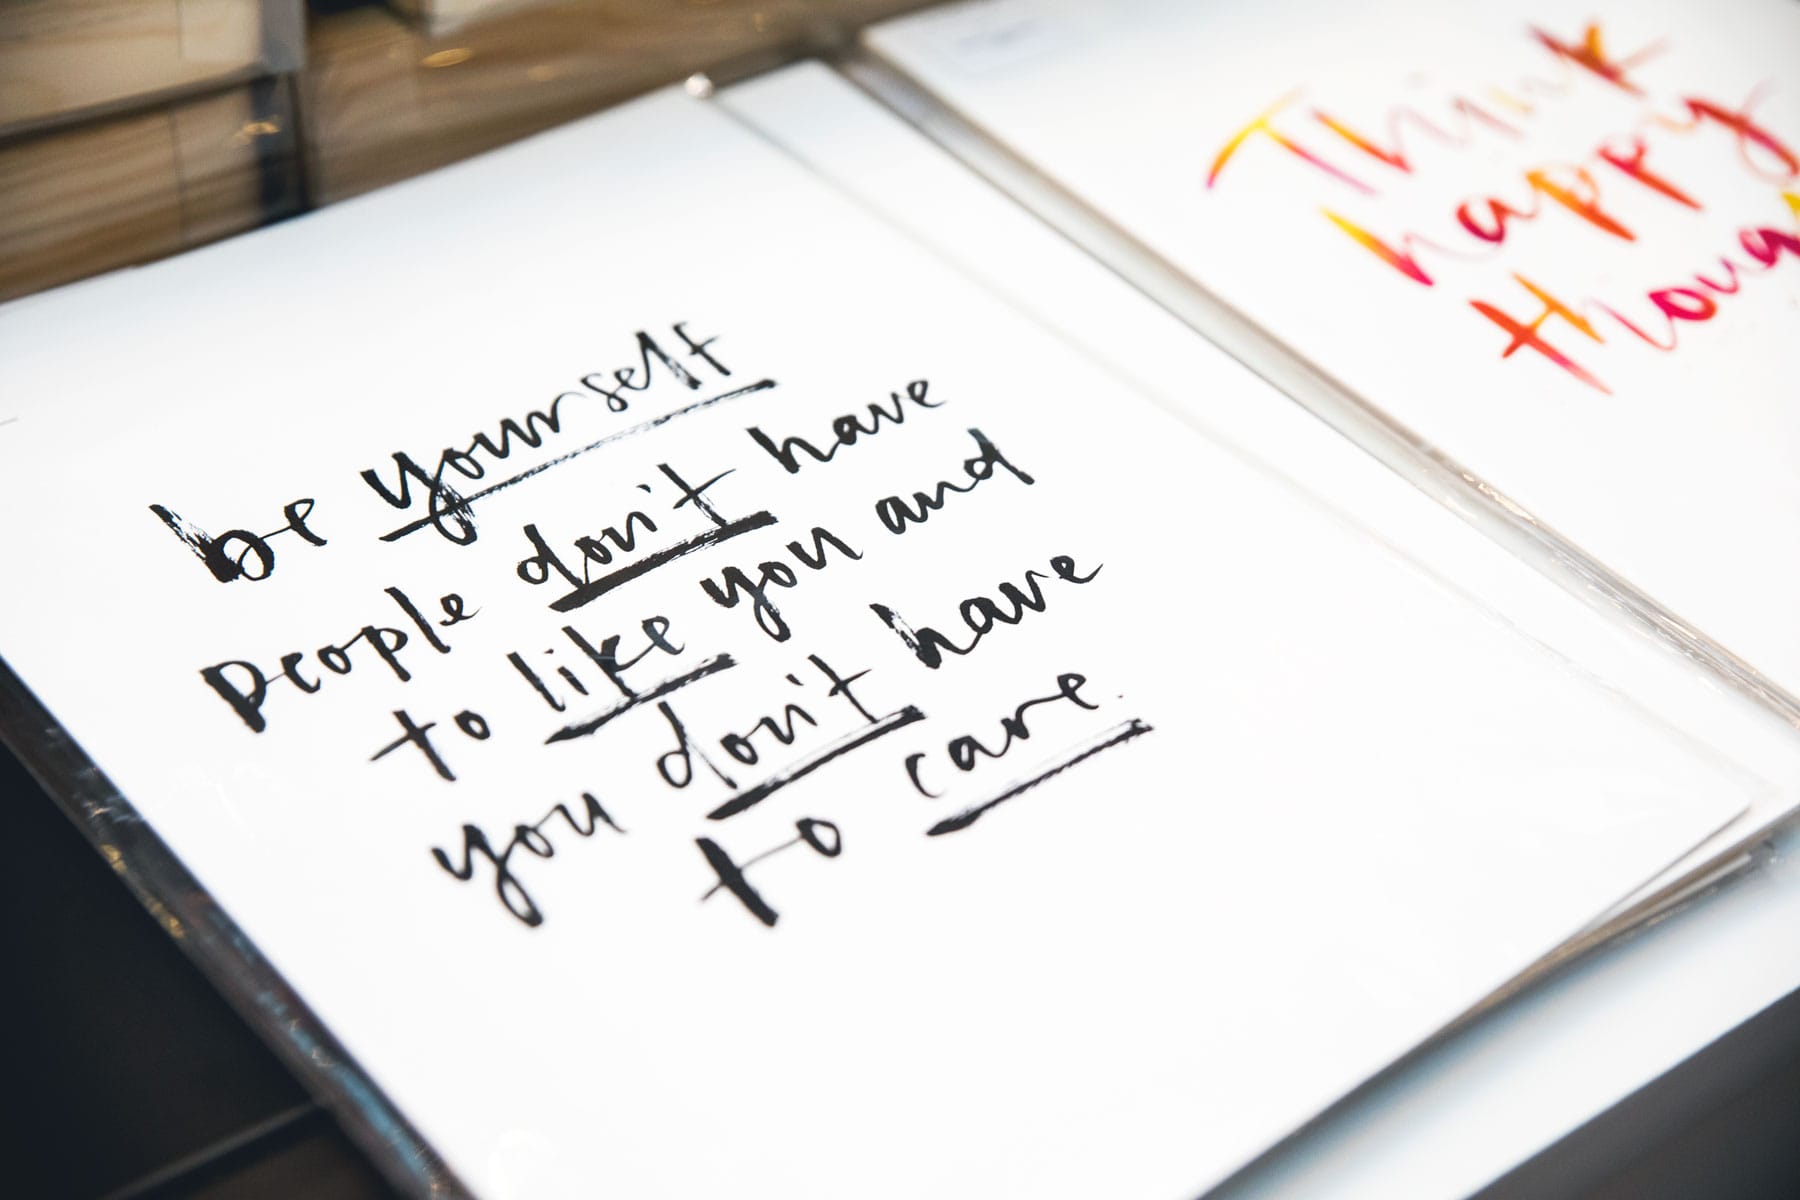 be yourself
people don't have
to like you and
you don't have
to care.
Think
happy
thoug